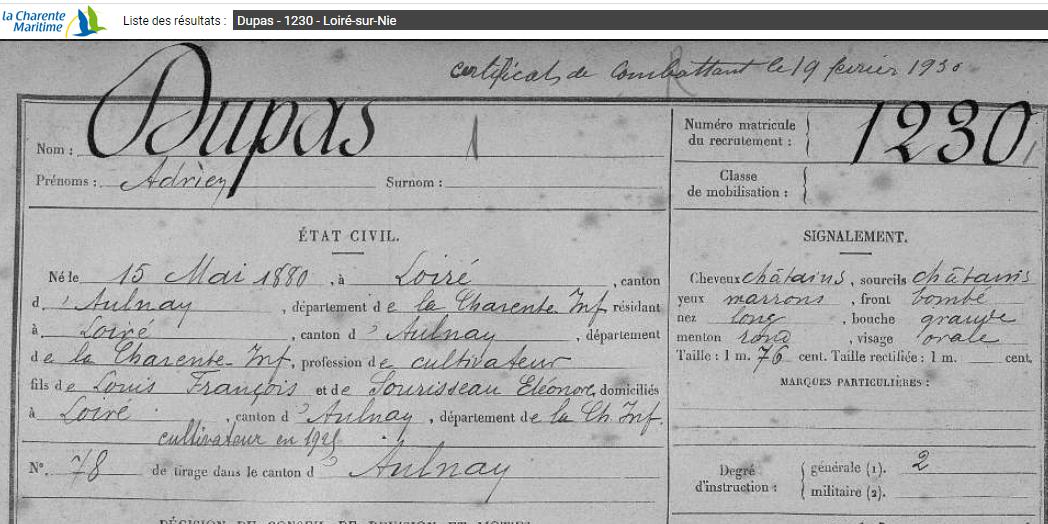 la Charente
Maritime
Liste des résultats : Dupas - 1230 - Loiré-sur-Nie
certificat de combattant le 19 février 1930
Nom : Dupas 1
Numéro matricule
du recrutement : 1230
Prénoms : Adrien Surnom :
Classe
de mobilisation :
ÉTAT CIVIL.
Né le 15 Mai 1880, à Loiré, canton
d'Aulnay, département de la Charente Inf résidant
à Loiré, canton d'Aulnay, département
de la Charente-Inf, profession de cultivateur
fils de Louis François et de Sourisseau Eléonore, domiciliés
à Loiré, canton d'Aulnay, département de la Ch. Inf.
cultivateur en 1921
N° 78 de tirage dans le canton d'Aulnay
SIGNALEMENT.
Cheveux châtains, sourcils châtains
yeux marrons, front bombé
nez long, bouche grande
menton rond, visage ovale
Taille : 1 m. 76 cent. Taille rectifiée : 1 m. cent.
MARQUES PARTICULIÈRES :
Degré
d'instruction :
générale (1). 2
militaire (2).
DÉCISION DU CONSEIL DE RÉVISION ET MOTIFS